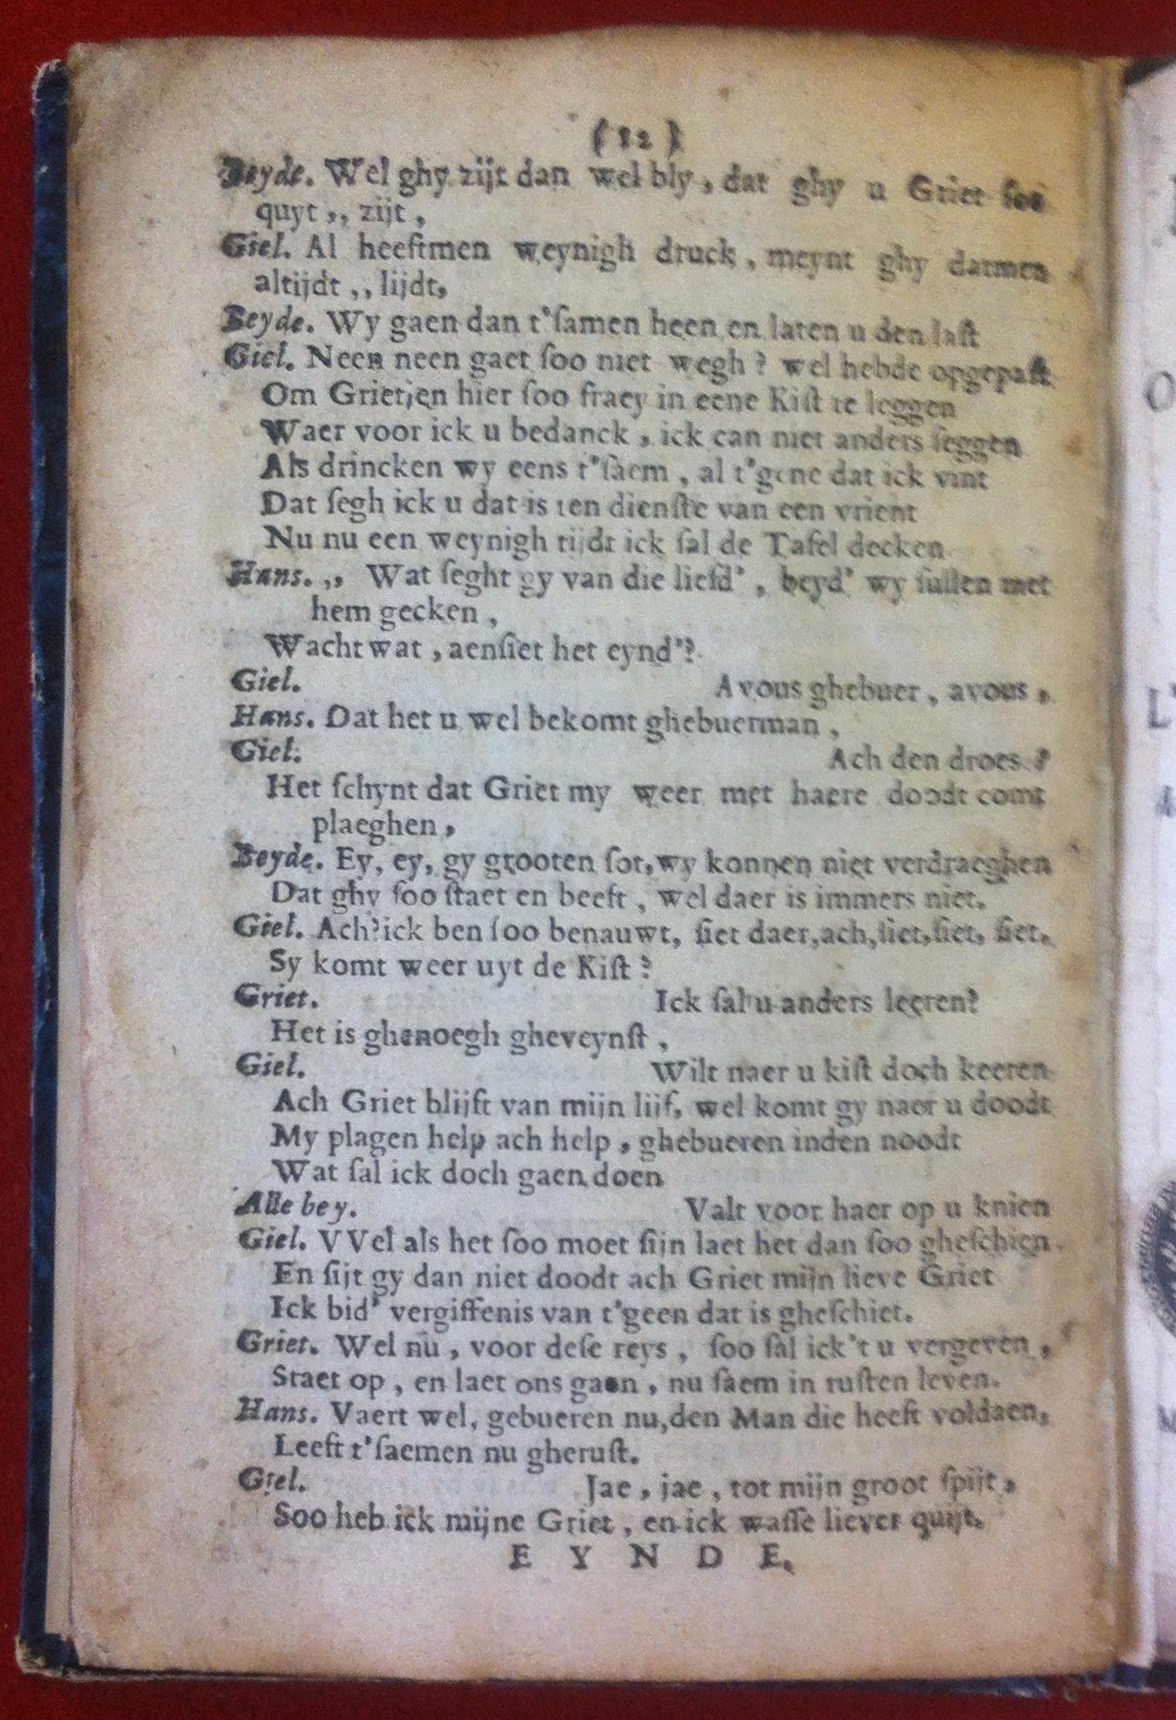 ( 12 )
Beyde. Wel ghy zijt dan wel bly, dat ghy u Griet soo
quyt ,, zijt,
Giel. Al heeftmen weynigh druck, meynt ghy datmen
altijdt ,, lijdt,
Beyde. Wy gaen dan t'samen heen en laten u den last
Giel. Neen neen gaet soo niet wegh? wel hebde opgepast
Om Grietjen hier soo fraey in eene Kist te leggen
Waer voor ick u bedanck, ick can niet anders seggen
Als drincken wy eens t'saem, al t'gene dat ick vint
Dat segh ick u dat is ten dienste van een vrient
Nu nu een weynigh tijdt ick sal de Tafel decken
Hans. ,, Wat seght gy van die liefd', beyd' wy sullen met
hem gecken,
Wacht wat, aensiet het eynd'?
Giel. Avous ghebuer, avous,
Hans. Dat het u wel bekomt ghebuerman,
Giel. Ach den droes?
Het schynt dat Griet my weer met haere doodt comt
plaeghen,
Beyde. Ey, ey, gy grooten sot, wy konnen niet verdraeghen
Dat ghy soo staet en beeft, wel daer is immers niet.
Giel. Ach? ick ben soo benauwt, siet daer, ach, siet, siet, siet,
Sy komt weer uyt de Kist?
Griet. Ick sal u anders leeren?
Het is ghenoegh gheveynst,
Giel. Wilt naer u kist doch keeren
Ach Griet blijft van mijn lijf, wel komt gy naer u doodt
My plagen help ach help, ghebueren inden noodt
Wat sal ick doch gaen doen
Alle bey. Valt voor haer op u knien
Giel. VVel als het soo moet sijn laet het dan soo gheschien.
En sijt gy dan niet doodt ach Griet mijn lieve Griet
Ick bid' vergiffenis van t'geen dat is gheschiet.
Griet. Wel nu, voor dese reys, soo sal ick't u vergeven,
Staet op, en laet ons gaen, nu saem in rusten leven.
Hans. Vaert wel, gebueren nu, den Man die heeft voldaen,
Leeft t'saemen nu gherust.
Giel. Jae, jae, tot mijn groot spijt,
Soo heb ick mijne Griet, en ick wasse liever quijt.
E Y N D E.